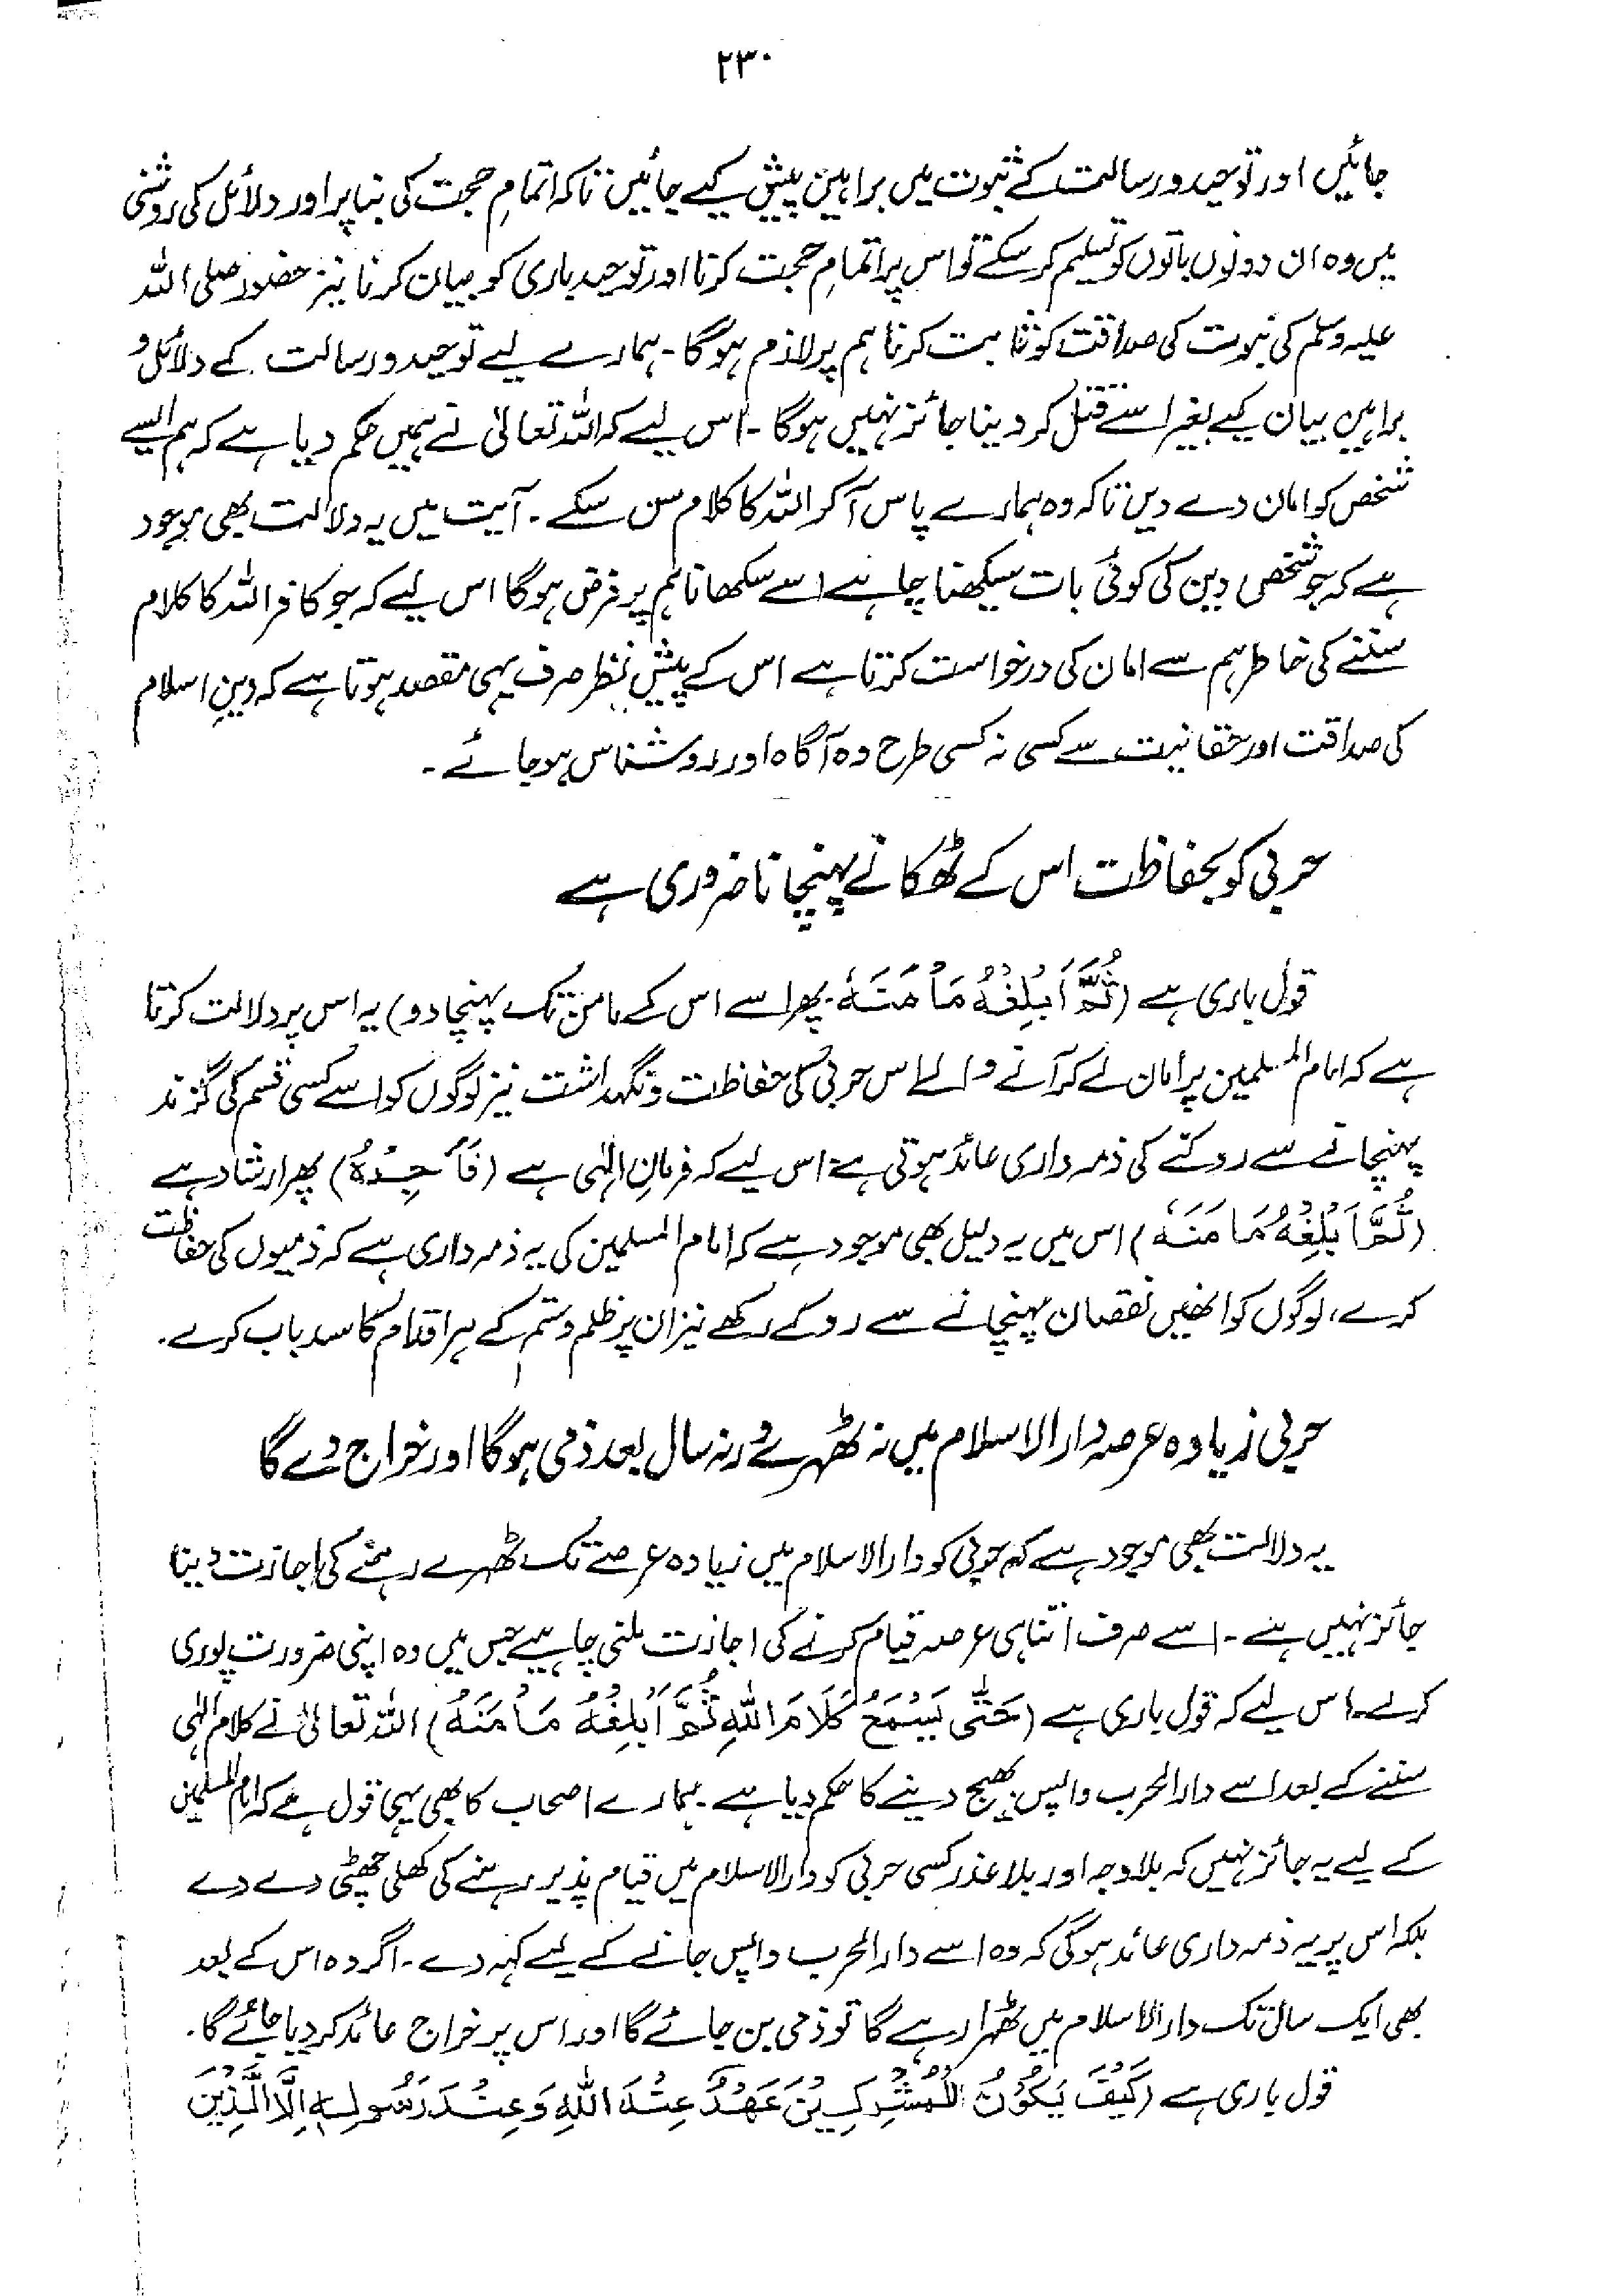 ۲۳۰
جائیں اور توحید و رسالت کے ثبوت میں براہین پیش کیے جائیں تاکہ اتمامِ حجت کی بنا پر اور دلائل کی روشنی
میں وہ ان دونوں باتوں کو تسلیم کر سکے تو اس پر اتمامِ حجت کرنا اور توحید باری کو بیان کرنا نیز حضور صلی اللہ
علیہ وسلم کی نبوت کی صداقت کو ثابت کرنا ہم پر لازم ہوگا۔ ہمارے لیے توحید و رسالت کے دلائل و
براہین بیان کیے بغیر اسے قتل کر دینا جائز نہیں ہوگا۔ اس لیے کہ اللہ تعالیٰ نے ہمیں حکم دیا ہے کہ ہم ایسے
شخص کو امان دے دیں تاکہ وہ ہمارے پاس آ کر اللہ کا کلام سن سکے۔ آیت میں یہ دلالت بھی موجود
ہے کہ جو شخص دین کی کوئی بات سیکھنا چاہے اسے سکھانا ہم پر فرض ہوگا اس لیے کہ جو کافر اللہ کا کلام
سننے کی خاطر ہم سے امان کی درخواست کرتا ہے اس کے پیشِ نظر صرف یہی مقصد ہوتا ہے کہ دینِ اسلام
کی صداقت اور حقانیت سے کسی نہ کسی طرح وہ آگاہ اور روشناس ہو جائے۔
حربی کو بحفاظت اس کے ٹھکانے پہنچانا ضروری ہے
قول باری ہے (ثُمَّ اَبْلِغْهُ مَاْمَنَهٗ۔ پھر اسے اس کے مامن تک پہنچا دو) یہ اس پر دلالت کرتا
ہے کہ امام المسلمین پر امان لے کر آنے والے اس حربی کی حفاظت و نگہداشت نیز لوگوں کو اسے کسی قسم کی گزند
پہنچانے سے روکنے کی ذمہ داری عائد ہوتی ہے اس لیے کہ فرمانِ الٰہی ہے (فَاَجِرْهُ) پھر ارشاد ہے
(ثُمَّ اَبْلِغْهُ مَاْمَنَهٗ) اس میں یہ دلیل بھی موجود ہے کہ امام المسلمین کی یہ ذمہ داری ہے کہ ذمیوں کی حفاظت
کرے، لوگوں کو انھیں نقصان پہنچانے سے روکے رکھے نیز ان پر ظلم و ستم کے ہر اقدام کا سدباب کرے۔
حربی زیادہ عرصہ دارالاسلام میں نہ ٹھہرے ورنہ سال بعد ذمی ہوگا اور خراج دے گا
یہ دلالت بھی موجود ہے کہ حربی کو دارالاسلام میں زیادہ عرصے تک ٹھہرے رہنے کی اجازت دینا
جائز نہیں ہے۔ اسے صرف اتنا ہی عرصہ قیام کرنے کی اجازت ملنی چاہیے جس میں وہ اپنی ضرورت پوری
کرلے۔ اس لیے کہ قول باری ہے (حَتّٰى يَسْمَعَ كَلَامَ اللّٰهِ ثُمَّ اَبْلِغْهُ مَاْمَنَهُ) اللہ تعالیٰ نے کلام الٰہی
سننے کے بعد اسے دارالحرب واپس بھیج دینے کا حکم دیا ہے۔ ہمارے اصحاب کا بھی یہی قول ہے کہ امام المسلمین
کے لیے یہ جائز نہیں کہ بلاوجہ اور بلا عذر کسی حربی کو دارالاسلام میں قیام پذیر رہنے کی کھلی چھٹی دے دے
بلکہ اس پر یہ ذمہ داری عائد ہوگی کہ وہ اسے دارالحرب واپس جانے کے لیے کہہ دے۔ اگر وہ اس کے بعد
بھی ایک سال تک دارالاسلام میں ٹھہرا رہے گا تو ذمی بن جائے گا اور اس پر خراج عائد کر دیا جائے گا۔
قول باری ہے (كَيْفَ يَكُوْنُ لِلْمُشْرِكِيْنَ عَهْدٌ عِنْدَ اللّٰهِ وَعِنْدَ رَسُوْلِهٖ اِلَّا الَّذِيْنَ